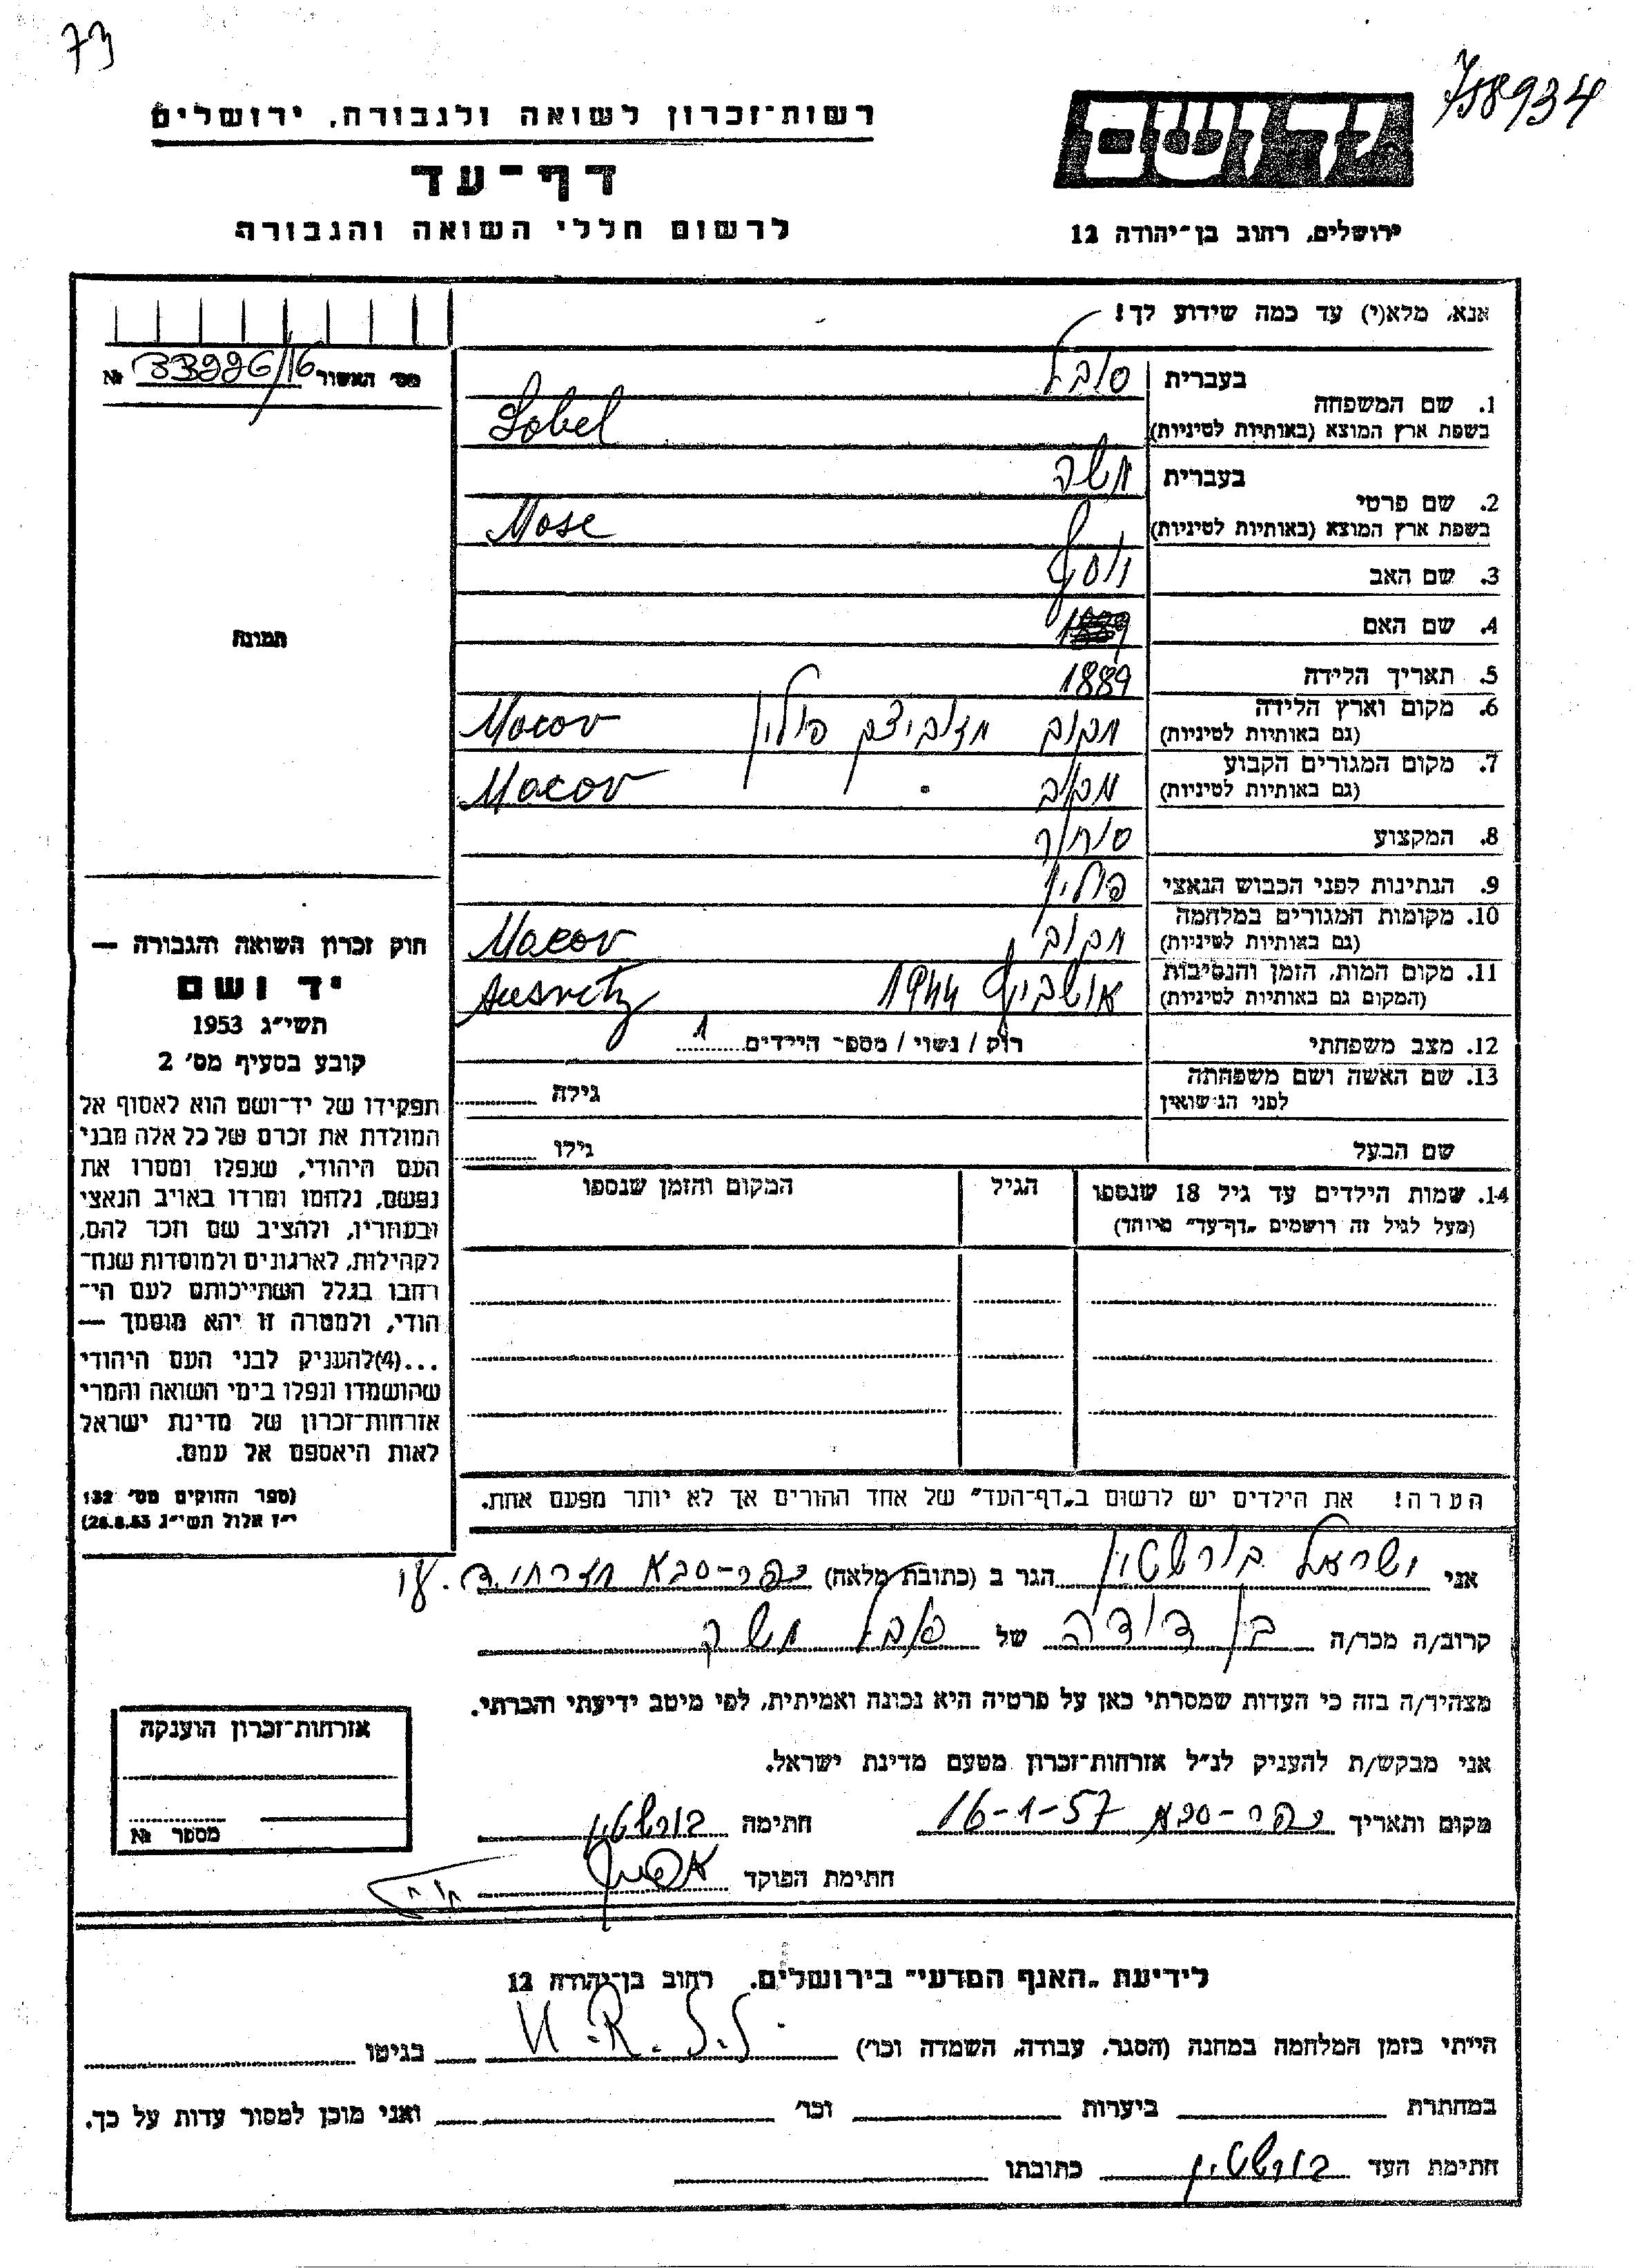 73
758934
רשות־זכרון לשואה ולגבורה, ירושלים
דף־עד
לרשום חללי השואה והגבורה
ירושלים, רחוב בן־יהודה 12
אנא, מלא(י) עד כמה שידוע לך!
מס׳ האשור 33226/16 №
1. שם המשפחה
בעברית סובל
בשפת ארץ המוצא (באותיות לטיניות) Sobel
2. שם פרטי
בעברית משה
בשפת ארץ המוצא (באותיות לטיניות) Mose
3. שם האב יוסף
4. שם האם
5. תאריך הלידה 1889
6. מקום וארץ הלידה
(גם באותיות לטיניות) מקוב מזוביצק פולין Macov
7. מקום המגורים הקבוע
(גם באותיות לטיניות) מקוב Macov
8. המקצוע סוחר
9. הנתינות לפני הכבוש הנאצי פולין
10. מקומות המגורים במלחמה
(גם באותיות לטיניות) מקוב Macov
11. מקום המות, הזמן והנסיבות
(המקום גם באותיות לטיניות) אושביץ 1944 Ausvitz
12. מצב משפחתי רוק / נשוי / מספר הילדים 1
13. שם האשה ושם משפחתה
לפני הנישואין גילה
שם הבעל גילו
14. שמות הילדים עד גיל 18 שנספו הגיל המקום והזמן שנספו
(מעל לגיל זה רושמים „דף־עד״ מיוחד)
תמונה
חוק זכרון השואה והגבורה —
יד ושם
תשי״ג 1953
קובע בסעיף מס׳ 2
תפקידו של יד־ושם הוא לאסוף אל
המולדת את זכרם של כל אלה מבני
העם היהודי, שנפלו ומסרו את
נפשם, נלחמו ומרדו באויב הנאצי
ובעוזריו, ולהציב שם וזכר להם,
לקהילות, לארגונים ולמוסדות שנח־
רבו בגלל השתייכותם לעם הי־
הודי, ולמטרה זו יהא מוסמך —
...(4)להעניק לבני העם היהודי
שהושמדו ונפלו בימי השואה והמרי
אזרחות־זכרון של מדינת ישראל
לאות היאספם אל עמם.
(ספר החוקים מס׳ 132
י״ז אלול תשי״ג 28.8.53)
הערה! את הילדים יש לרשום ב„דף־העד״ של אחד ההורים אך לא יותר מפעם אחת.
אני ישראל בורשטין הגר ב (כתובת מלאה) כפר-סבא
קרוב/ה מכר/ה בן דודה של סובל משה
מצהיר/ה בזה כי העדות שמסרתי כאן על פרטיה היא נכונה ואמיתית, לפי מיטב ידיעתי והכרתי.
אני מבקש/ת להעניק לנ״ל אזרחות־זכרון מטעם מדינת ישראל.
מקום ותאריך כפר-סבא 16-1-57 חתימה בורשטין
חתימת הפוקד
אזרחות־זכרון הוענקה
מספר №
לידיעת „האגף המדעי״ בירושלים, רחוב בן־יהודה 12
הייתי בזמן המלחמה במחנה (הסגר, עבודה, השמדה וכו׳) בגיטו
במחתרת ביערות וכו׳ ואני מוכן למסור עדות על כך.
חתימת העד בורשטין כתובתו